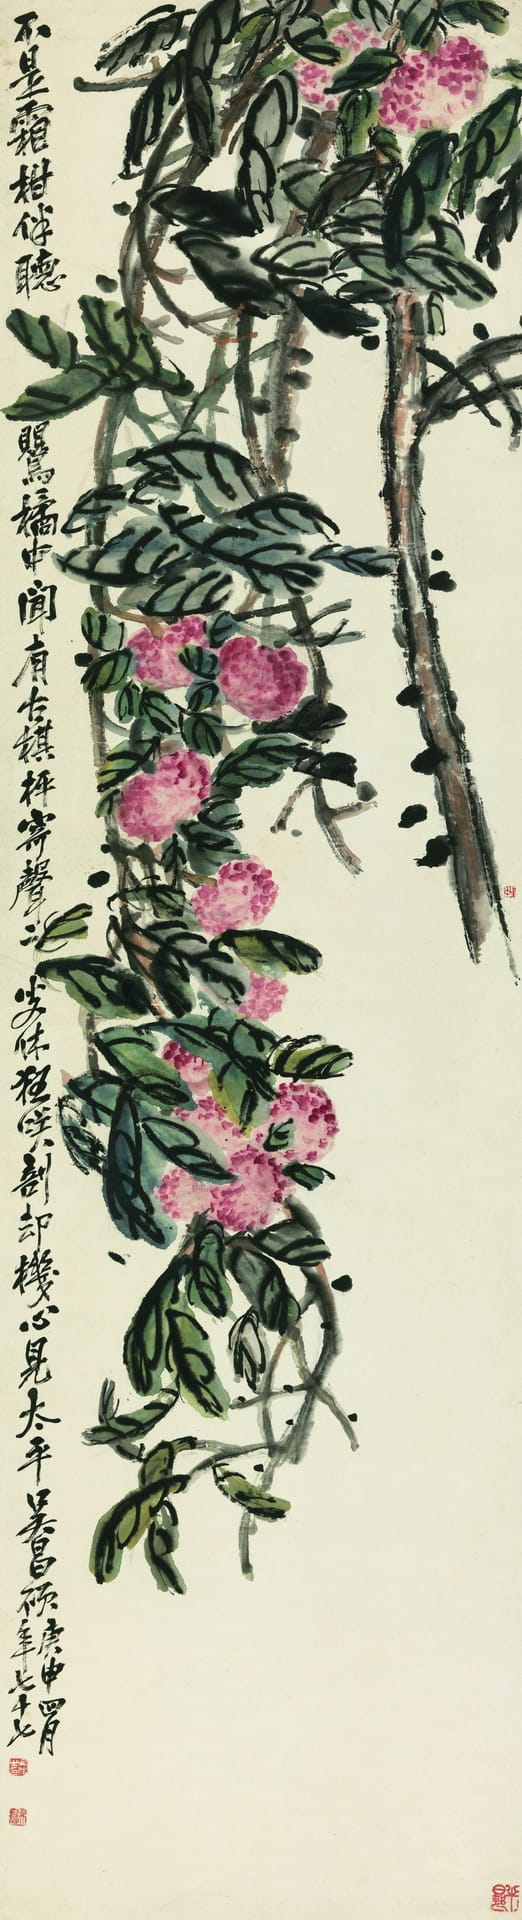 不是霜柑伴聽鸎橘中聞有古棋枰寄聲二叟休狂咲剖却機心見太平吳昌碩
庚申四月
年七十七